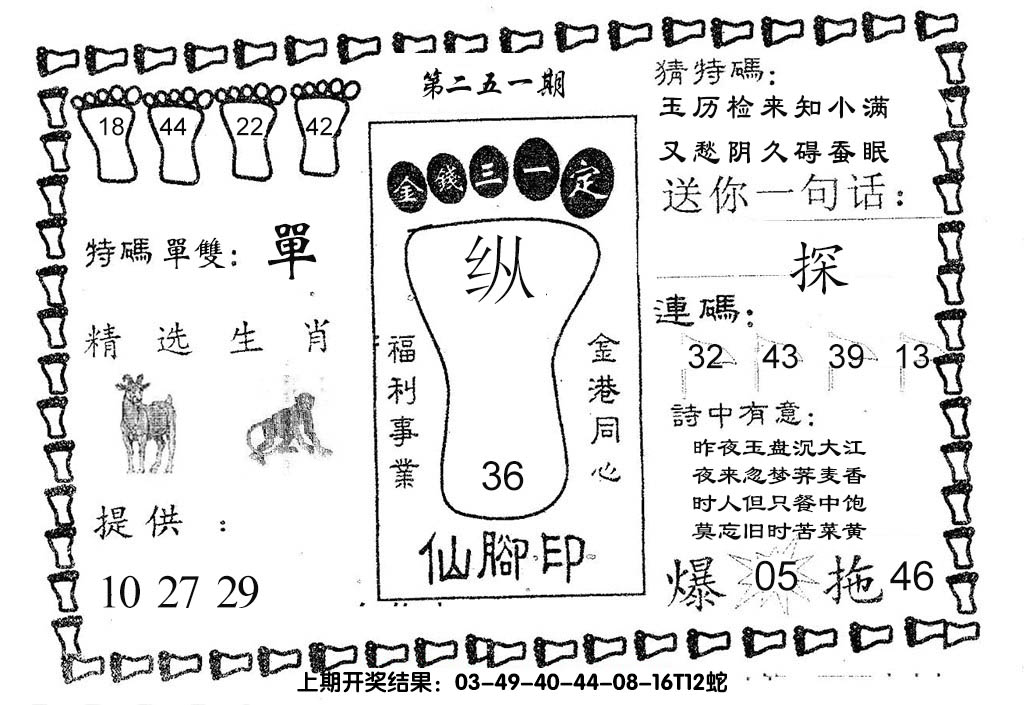 第二五一期
18 44 22 42
特碼單雙: 單
精选生肖
提供:
10 27 29
金錢三一定
纵
福利事業
金港同心
36
仙腳印
猜特碼:
玉历检来知小满
又愁阴久碍蚕眠
送你一句话:
探
連碼:
32 43 39 13
詩中有意:
昨夜玉盘沉大江
夜来忽梦荞麦香
时人但只餐中饱
莫忘旧时苦菜黄
爆 05 拖 46
上期开奖结果: 03-49-40-44-08-16T12蛇